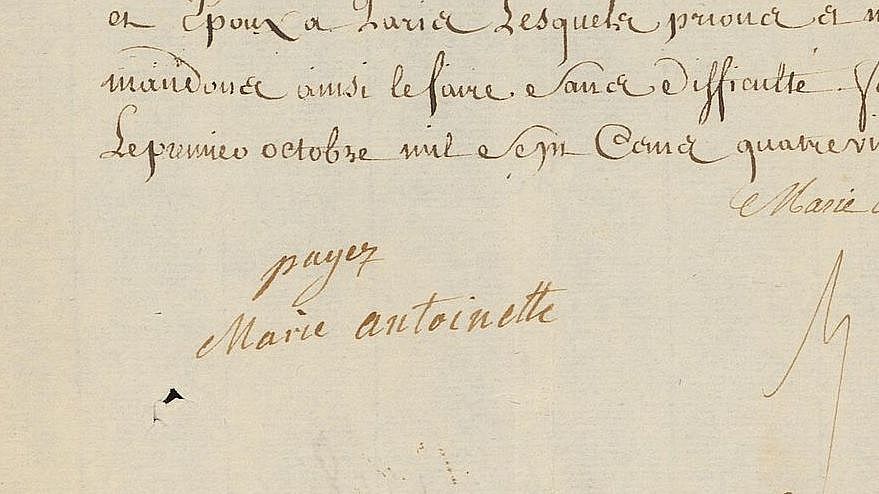 et Epoux a Paris Lesquels prions et m
mandons ainsi le faire Sans Difficulté
Le premier octobre mil Sept Cens quatre vi
Marie
payez
Marie antoinette